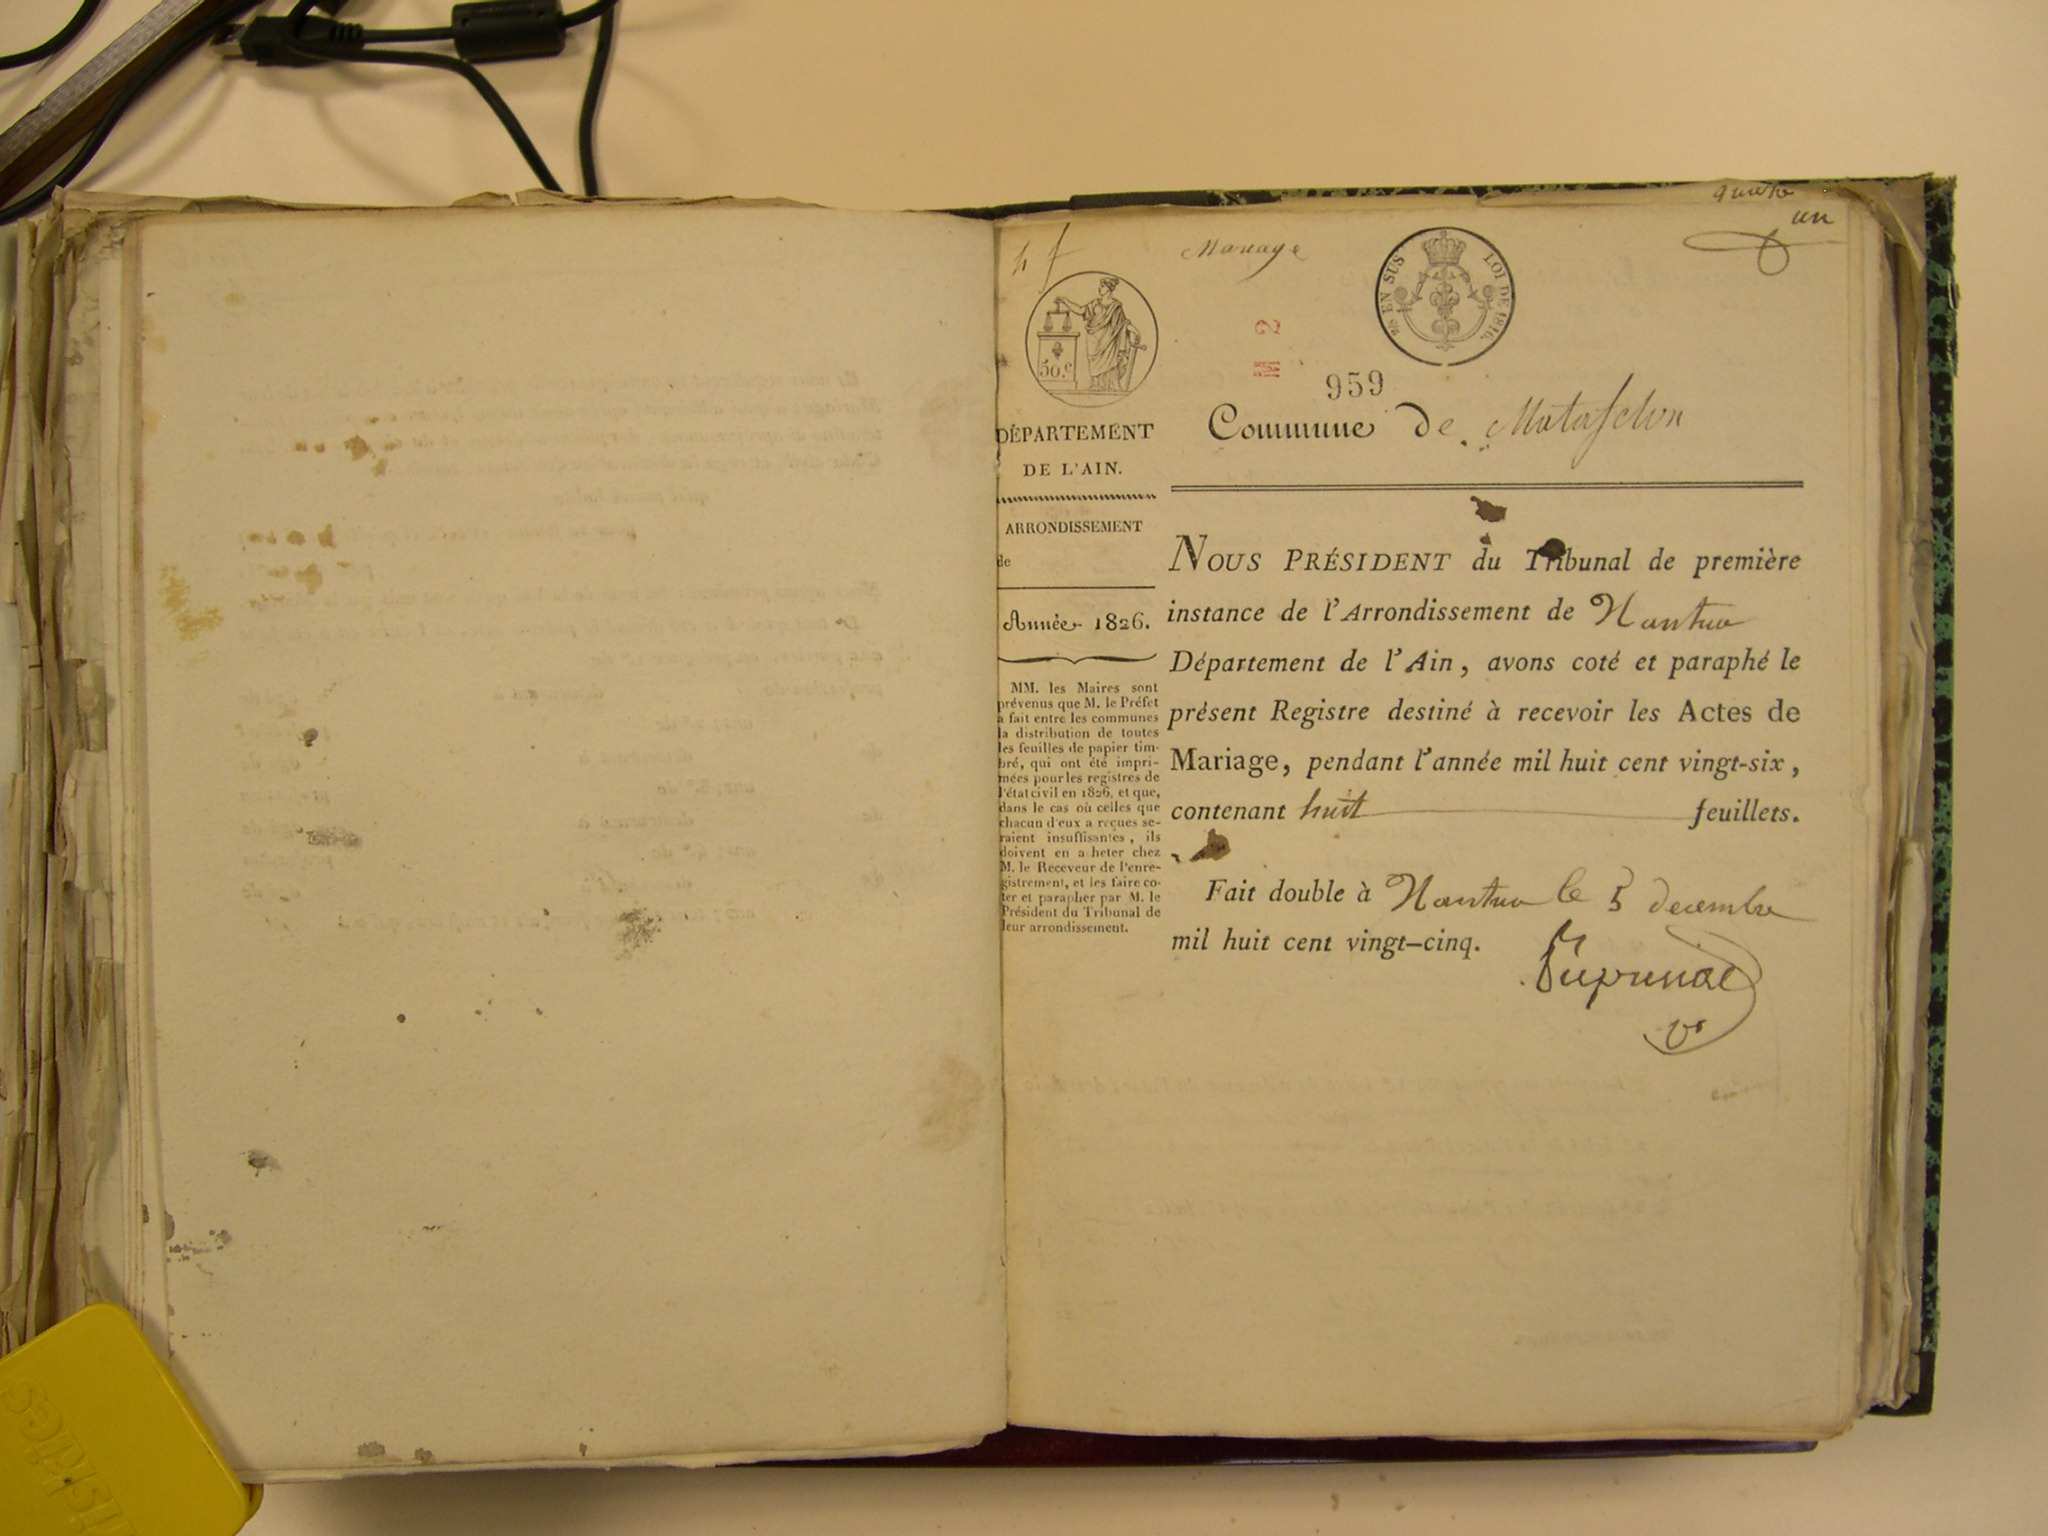 un
Mariage
EN SUS LOI DE 1816.
50.c
2
959
DÉPARTEMENT
DE L'AIN.
ARRONDISSEMENT
de
Année 1826.
MM. les Maires sont
prévenus que M. le Préfet
a fait entre les communes
la distribution de toutes
les feuilles de papier tim-
bré, qui ont été impri-
mées pour les registres de
l'état civil en 1826, et que,
dans le cas où celles que
chacun d'eux a reçues se-
raient insuffisantes, ils
doivent en a heter chez
M. le Receveur de l'enre-
gistrement, et les faire co-
ter et parapher par M. le
Président du Tribunal de
leur arrondissement.
Commune de Matafelon
NOUS PRÉSIDENT du Tribunal de première
instance de l'Arrondissement de Nantua
Département de l'Ain, avons coté et paraphé le
présent Registre destiné à recevoir les Actes de
Mariage, pendant l'année mil huit cent vingt-six,
contenant huit feuillets.
Fait double à Nantua le 5 decembre
mil huit cent vingt-cinq.